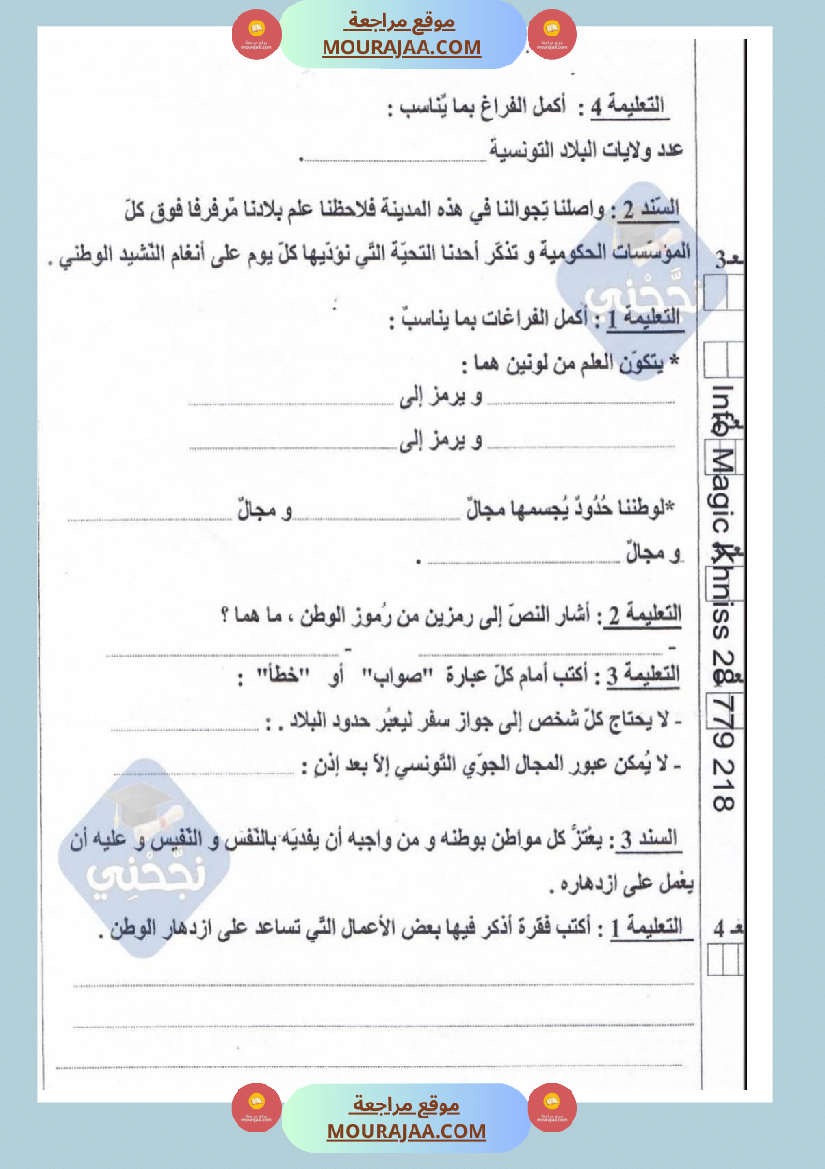 موقع مراجعة
MOURAJAA.COM
التعليمة 4 : أكمل الفراغ بما يُناسب :
عدد ولايات البلاد التونسية .
السّند 2 : واصلنا تِجوالنا في هذه المدينة فلاحظنا علم بلادنا مٌرفرفا فوق كلّ
المؤسّسات الحكومية و تذكّر أحدنا التحيّة التّي نؤدّيها كلّ يوم على أنغام النّشيد الوطني .
التعليمة 1 : أكمل الفراغات بما يناسبٌ :
* يتكوّن العلم من لونين هما :
و يرمز إلى
و يرمز إلى
*لوطننا حُدُودٌ يُجسمها مجالٌ و مجالٌ
و مجالٌ .
التعليمة 2 : أشار النصّ إلى رمزين من رُموز الوطن ، ما هما ؟
- -
التعليمة 3 : أكتب أمام كلّ عبارة "صواب" أو "خطأ" :
- لا يحتاج كلّ شخص إلى جواز سفر ليعبُر حدود البلاد . :
- لا يُمكن عبور المجال الجوّي التّونسي إلاّ بعد إذنٍ :
السند 3 : يعْتَزُّ كل مواطن بوطنه و من واجبه أن يفديَه بالنّفسَ و النّفيس و عليه أن
يعْمل على ازدهاره .
التعليمة 1 : أكتب فقرة أذكر فيها بعض الأعمال التّي تساعد على ازدهار الوطن .
مـعـ3
مـعـ 4
Info Magic Khniss 28 779 218
نجّحْنِي
نجّحْنِي
موقع مراجعة
MOURAJAA.COM